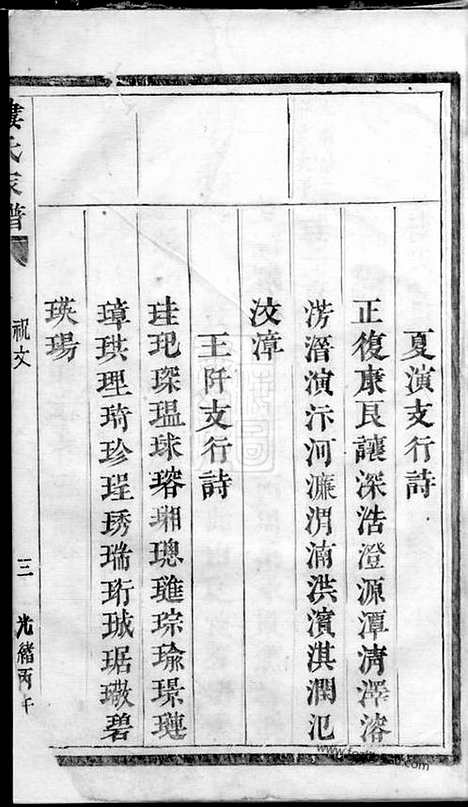 夏演支行詩
正復康艮讓深浩澄源潭濟澤濬
滂潛演汴河濂渭湳洪濱淇潤氾
汶漳
王阡支行詩
珪玘琛瑥球瑢瑚璁璡琮瑜璟璉
璋珙理琦珍珵琇瑞珩珹琚璥碧
瑛瑒
氏家譜
祝文
三
光緒丙午